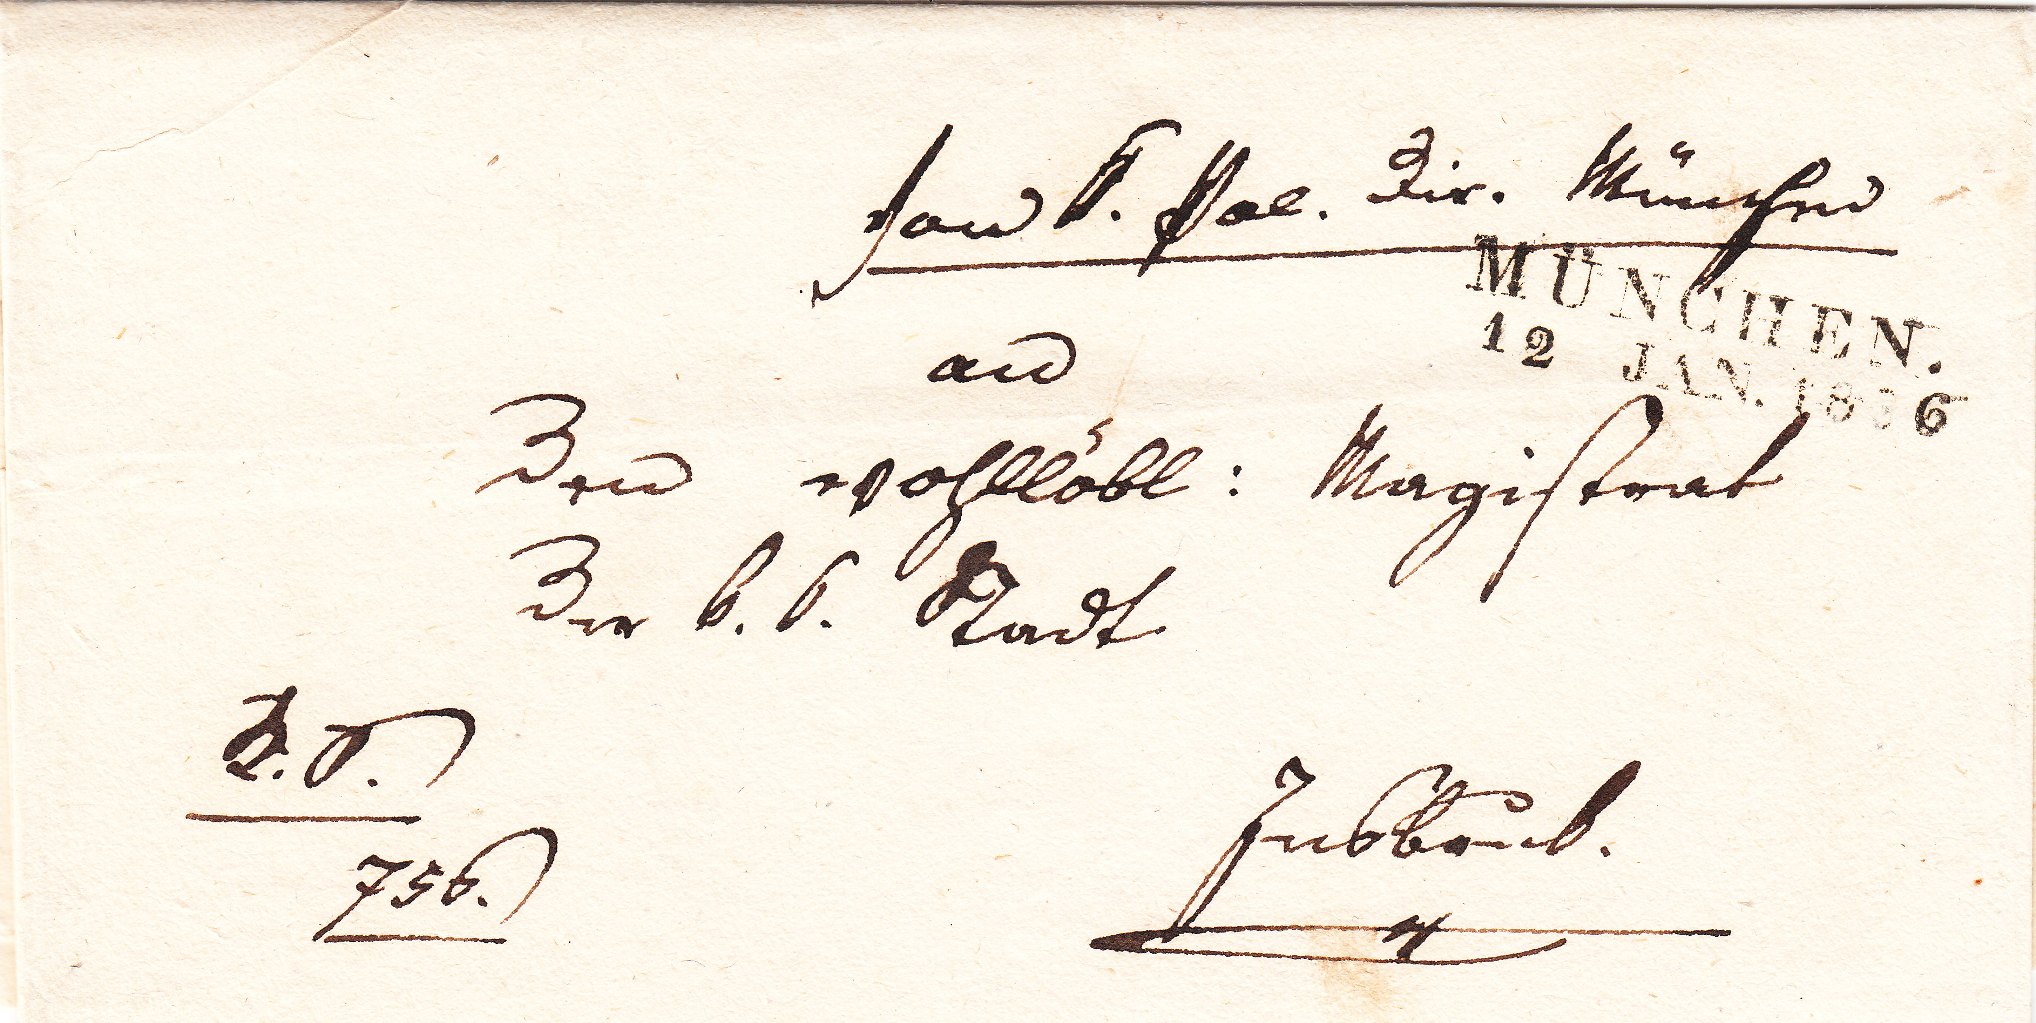 Von K. Pol. Dir. München
MÜNCHEN.
12 JAN. 1836
an
Den wohllöbl: Magistrat
Der k. k. Stadt
Insbruk.
756.